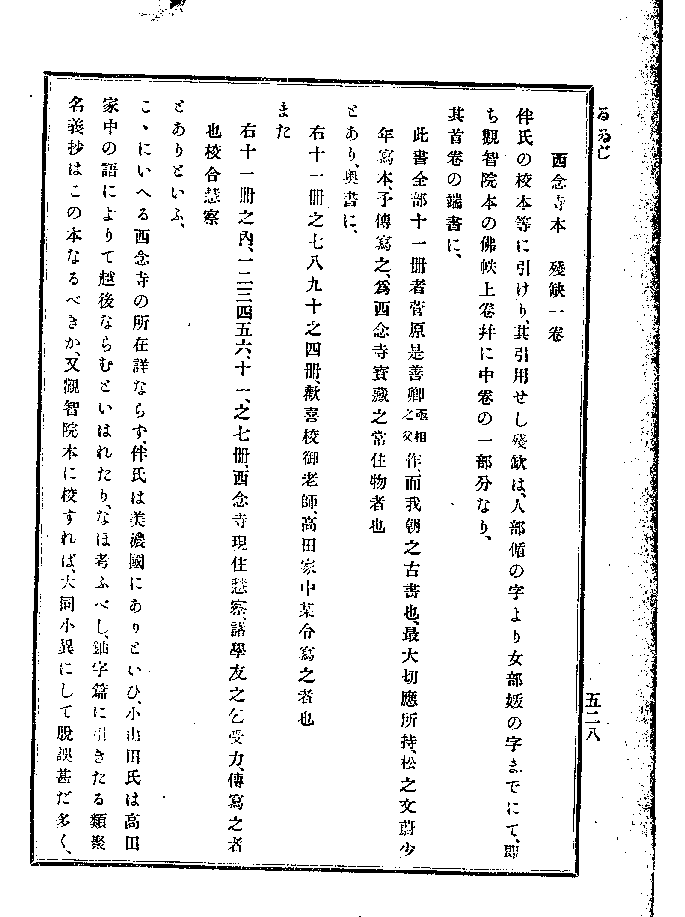 るゐじ
五二八
西念寺本　殘缺一卷
伴氏の校本等に引けり、其引用せし殘缺は、人部偱の字より女部媛の字までにて、卽
ち觀智院本の佛帙上卷幷に中卷の一部分なり、
其首卷の端書に、
此書全部十一册者菅原是善卿丞相之父作、而我朝之古書也、最大切應所持、松之文蔚少
年寫本、予傳寫之、爲西念寺寶藏之常住物者也
とあり、奧書に、
右十一册之七八九十之四册、歡喜校御老師、高田家中某令寫之者也
また
右十一册之內、一二三四五六、十一、之七册、西念寺現住慧察、諸學友之乞受力、傳寫之者
也校合慧察
とありといふ、
こゝにいへる西念寺の所在詳ならず、伴氏は美濃國にありといひ、小山田氏は高田
家中の語によりて越後ならむといはれたり、なほ考ふべし、鈿字篇に引きたる類聚
名義抄はこの本なるべきか、又觀智院本に校すれば、大同小異にして脫誤甚だ多く、